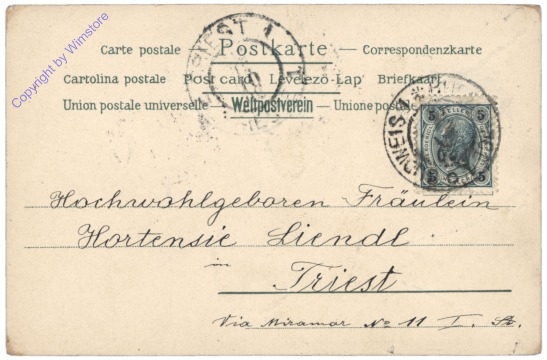 Carte postale — Postkarte — Correspondenzkarte
Cartolina postale Post card Levelező-Lap Briefkaart
Union postale universelle — Weltpostverein — Unione postale
Hochwohlgeboren Fräulein
Hortensie Liendl
in
Triest
Via Miramar No 11 I. St.
TRIEST 1
5 5
5 5
Copyright by Wimstore